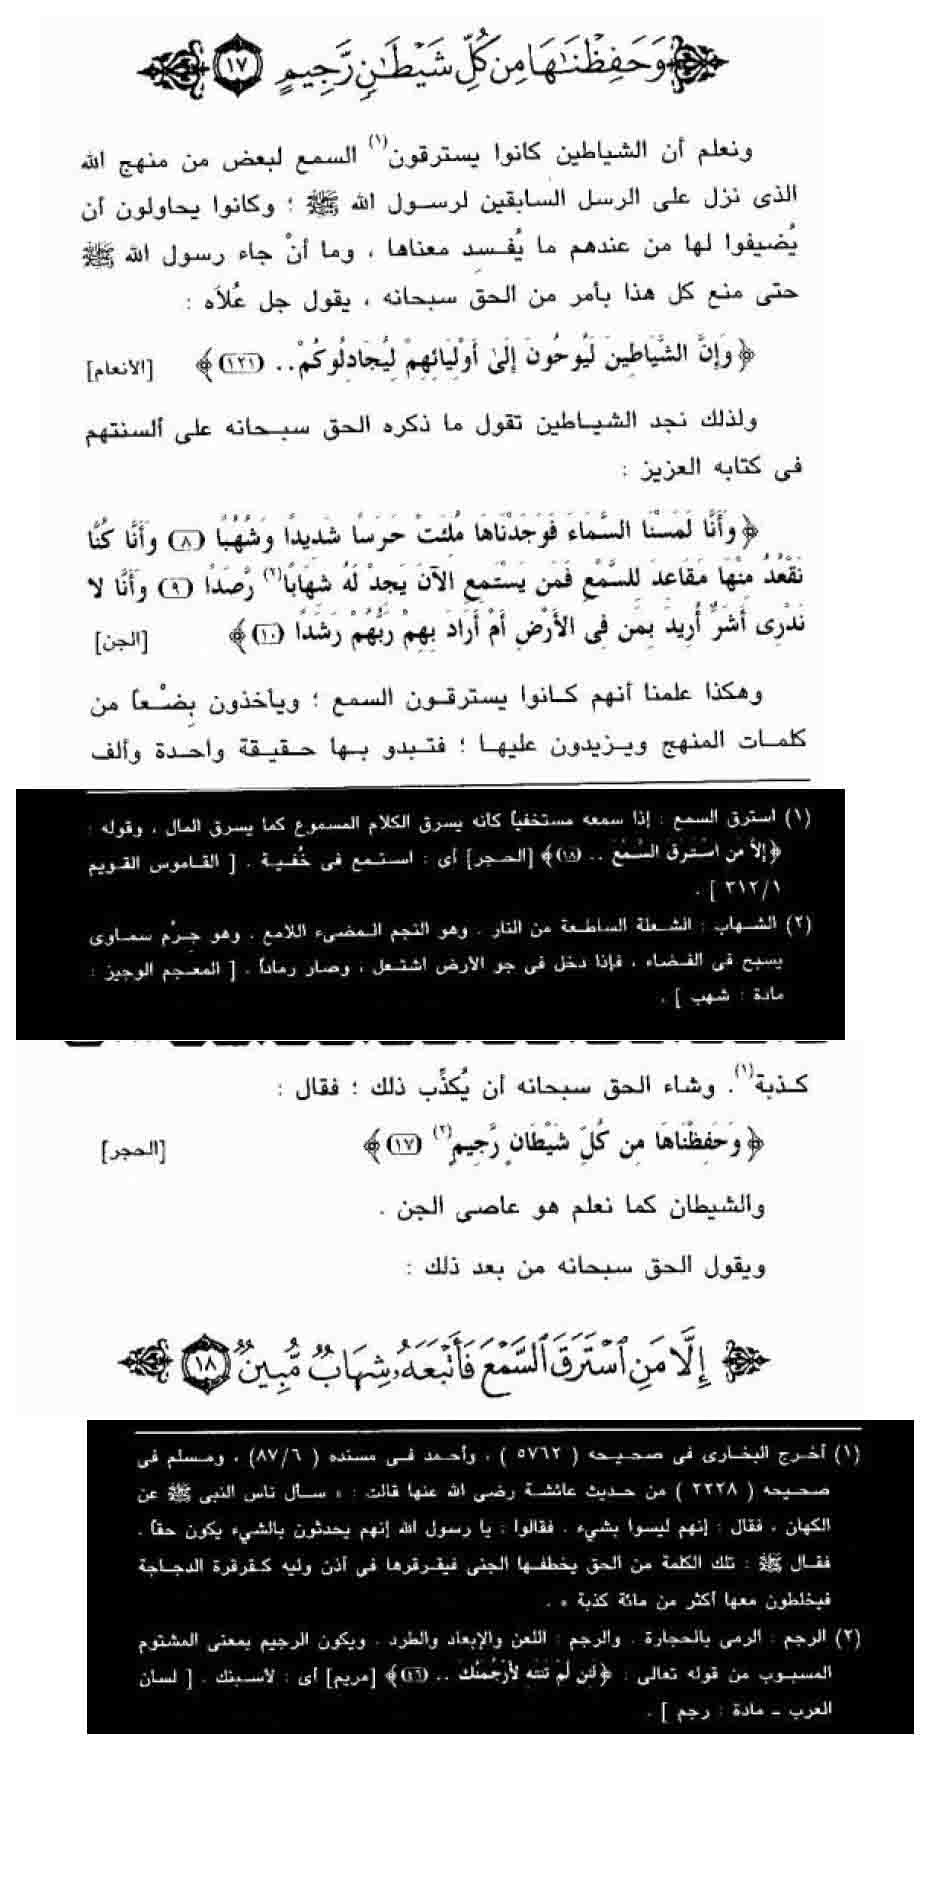 وَحَفِظْنَـٰهَا مِن كُلِّ شَيْطَـٰنٍ رَّجِيمٍ ١٧
ونعلم أن الشياطين كانوا يسترقون(١) السمع لبعض من منهج الله
الذى نزل على الرسل السابقين لرسول الله ﷺ ؛ وكانوا يحاولون أن
يُضيفوا لها من عندهم ما يُفسِد معناها ، وما أنْ جاء رسول الله ﷺ
حتى منع كل هذا بأمر من الحق سبحانه ، يقول جل عُلاَه :
﴿ وَإِنَّ الشَّيَاطِينَ لَيُوحُونَ إِلَىٰ أَوْلِيَائِهِمْ لِيُجَادِلُوكُمْ.. (١٢١) ﴾ [الأنعام]
ولذلك نجد الشياطين تقول ما ذكره الحق سبحانه على ألسنتهم
فى كتابه العزيز :
﴿ وَأَنَّا لَمَسْنَا السَّمَاءَ فَوَجَدْنَاهَا مُلِئَتْ حَرَسًا شَدِيدًا وَشُهُبًا (٨) وَأَنَّا كُنَّا
نَقْعُدُ مِنْهَا مَقَاعِدَ لِلسَّمْعِ فَمَن يَسْتَمِعِ الآنَ يَجِدْ لَهُ شِهَابًا(٢) رَّصَدًا (٩) وَأَنَّا لا
نَدْرِى أَشَرٌّ أُرِيدَ بِمَن فِى الأَرْضِ أَمْ أَرَادَ بِهِمْ رَبُّهُمْ رَشَدًا (١٠) ﴾ [الجن]
وهكذا علمنا أنهم كانوا يسترقون السمع ؛ ويأخذون بِضْعاً من
كلمات المنهج ويزيدون عليها ؛ فتبدو بها حقيقة واحدة وألف
(١) استرق السمع : إذا سمعه مستخفياً كأنه يسرق الكلام المسموع كما يسرق المال ، وقوله :
﴿ إِلاَّ مَنِ اسْتَرَقَ السَّمْعَ .. (١٨) ﴾ [الحجر] أى : استمع فى خُفية . [ القاموس القويم
٣١٢/١ ] .
(٢) الشهاب : الشعلة الساطعة من النار . وهو النجم المضىء اللامع . وهو جِرْم سماوى
يسبح فى الفضاء ، فإذا دخل فى جو الأرض اشتعل ، وصار رماداً . [ المعجم الوجيز :
مادة : شهب ] .
كذبة(١). وشاء الحق سبحانه أن يُكذِّب ذلك ؛ فقال :
﴿ وَحَفِظْنَاهَا مِن كُلِّ شَيْطَانٍ رَّجِيمٍ(٢) (١٧) ﴾ [الحجر]
والشيطان كما نعلم هو عاصى الجن .
ويقول الحق سبحانه من بعد ذلك :
إِلَّا مَنِ ٱسْتَرَقَ ٱلسَّمْعَ فَأَتْبَعَهُۥ شِهَابٌ مُّبِينٌ ١٨
(١) أخرج البخارى فى صحيحه ( ٥٧٦٢ ) ، وأحمد فى مسنده ( ٨٧/٦ ) ، ومسلم فى
صحيحه ( ٢٢٢٨ ) من حديث عائشة رضى الله عنها قالت : « سأل ناس النبى ﷺ عن
الكهان ، فقال : إنهم ليسوا بشىء . فقالوا : يا رسول الله إنهم يحدثون بالشىء يكون حقاً .
فقال ﷺ : تلك الكلمة من الحق يخطفها الجنى فيقرقرها فى أذن وليه كقرقرة الدجاجة
فيخلطون معها أكثر من مائة كذبة » .
(٢) الرجم : الرمى بالحجارة . والرجم : اللعن والإبعاد والطرد . ويكون الرجيم بمعنى المشتوم
المسبوب من قوله تعالى : ﴿ لَئِن لَّمْ تَنتَهِ لأَرْجُمَنَّكَ .. (٤٦) ﴾ [مريم] أى : لأسبنك . [ لسان
العرب - مادة : رجم ] .